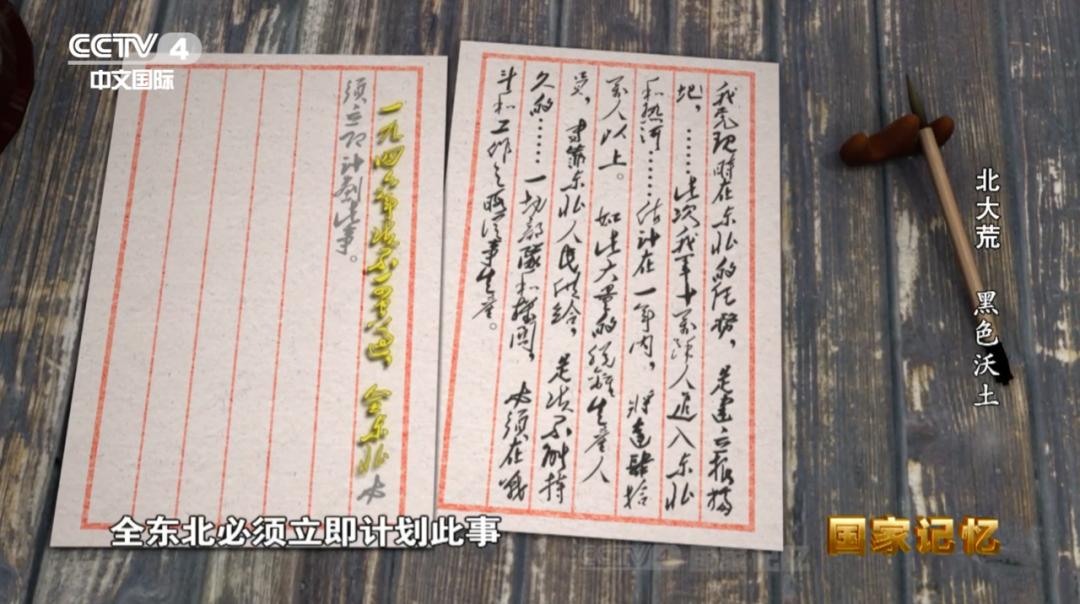 CCTV 4
中文国际
我党现时在东北的任务，是建立根据
地，……此次我军十万馀人进入东北
和热河……估计在一年内，将达肆拾
万人以上。如此大量的脱离生产人
员，专靠东北人民供给，是决不能持
久的……一切部隊和机关，必须在战
斗和工作之暇从事生产。
一九四六年决不可空过，全东北必
须立即计划此事。
北大荒 黑色沃土
全东北必须立即计划此事
国家记忆